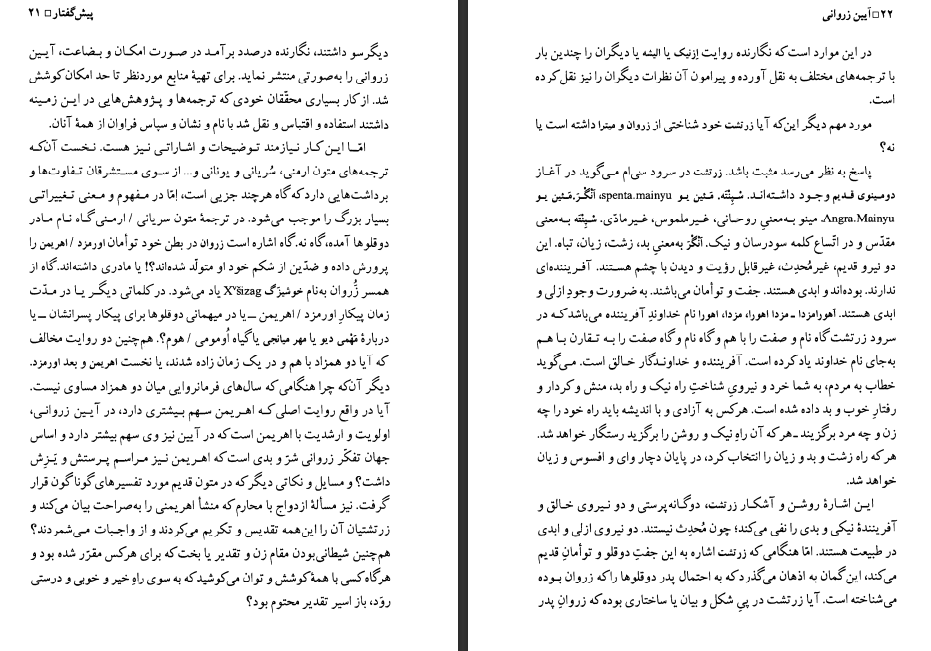 پیش‌گفتار □ ۲۱
دیگرسو داشتند، نگارنده درصدد برآمد در صورت امکان و بضاعت، آیین
زروانی را به‌صورتی منتشر نماید. برای تهیهٔ منابع موردنظر تا حد امکان کوشش
شد. از کار بسیاری محقّقان خودی که ترجمه‌ها و پژوهش‌هایی در این زمینه
داشتند استفاده و اقتباس و نقل شد با نام و نشان و سپاس فراوان از همهٔ آنان.
امّا این کار نیازمند توضیحات و اشاراتی نیز هست. نخست آن‌که
ترجمه‌های متون ارمنی، سُریانی و یونانی و... از سوی مستشرقان تفاوت‌ها و
برداشت‌هایی دارد که گاه هرچند جزیی است، امّا در مفهوم و معنی تغییراتی
بسیار بزرگ را موجب می‌شود. در ترجمهٔ متون سریانی / ارمنی گاه نام مادر
دوقلوها آمده، گاه نه. گاه اشاره است زروان در بطن خود توأمان اورمزد / اهریمن را
پرورش داده و ضدّین از شکم خود او متولّد شده‌اند؟! یا مادری داشته‌اند. گاه از
همسر زُروان به‌نام خوشیزگ Xᵛšizag یاد می‌شود. در کلماتی دیگر یا در مدّت
زمان پیکارِ اورمزد / اهریمن ــ یا در میهمانی دوقلوها برای پیکار پسرانشان ــ یا
دربارهٔ مَهْمی دیو یا مهر میانجی یا گیاه اُومومی / هوم؟. هم‌چنین دو روایت مخالف
که آیا دو همزاد با هم و در یک زمان زاده شدند، یا نخست اهریمن و بعد اورمزد.
دیگر آن‌که چرا هنگامی که سال‌های فرمانروایی میان دو همزاد مساوی نیست.
آیا در واقع روایت اصلی که اهریمن سهم بیشتری دارد، در آیین زروانی،
اولویت و ارشدیت با اهریمن است که در آیین نیز وی سهم بیشتر دارد و اساس
جهان تفکّر زروانی شرّ و بدی است که اهریمن نیز مراسم پرستش و یَزِش
داشت؟ و مسایل و نکاتی دیگر که در متون قدیم مورد تفسیرهای گوناگون قرار
گرفت. نیز مسألهٔ ازدواج با محارم که منشأ اهریمنی را به‌صراحت بیان می‌کند و
زرتشتیان آن را این‌همه تقدیس و تکریم می‌کردند و از واجبات می‌شمردند؟
هم‌چنین شیطانی‌بودن مقام زن و تقدیر یا بخت که برای هرکس مقرّر شده بود و
هرگاه کسی با همهٔ کوشش و توان می‌کوشید که به سوی راهِ خیر و خوبی و درستی
روَد، باز اسیر تقدیر محتوم بود؟
۲۲ □ آیین زروانی
در این موارد است که نگارنده روایت اِزنیک یا الیشه یا دیگران را چندین بار
با ترجمه‌های مختلف به نقل آورده و پیرامون آن نظرات دیگران را نیز نقل کرده
است.
مورد مهم دیگر این‌که آیا زرتشت خود شناختی از زروان و میترا داشته است یا
نه؟
پاسخ به نظر می‌رسد مثبت باشد. زرتشت در سرود سی‌ام می‌گوید در آغاز
دومینوی قدیم وجود داشته‌اند. سْپِنْتَه. مَـئین یو spenta.mainyu، اَنْگْرَ.مَـئین یو
Angra.Mainyu. مینو به‌معنیِ روحانی، غیرملموس، غیرمادّی. سْپِنْتَه به‌معنی
مقدّس و در اتّساع کلمه سودرسان و نیک. اَنْگْرَ به‌معنیِ بد، زشت، زیان، تباه. این
دو نیرو قدیم، غیر مُحدِث، غیرقابل رؤیت و دیدن با چشم هستند. آفریننده‌ای
ندارند. بوده‌اند و ابدی هستند. جفت و توأمان می‌باشند. به ضرورت وجودِ ازلی و
ابدی هستند. آهورامزدا ــ مزدا اهورا، مزدا، اهورا نام خداوندِ آفریننده می‌باشد که در
سرود زرتشت گاه نام و صفت را با هم و گاه نام و گاه صفت را به تقارن با هم
به‌جای نام خداوند یاد کرده است. آفریننده و خداوندگار خالق است. می‌گوید
خطاب به مردم، به شما خرد و نیرویِ شناختِ راه نیک و راه بد، منش و کردار و
رفتارِ خوب و بد داده شده است. هرکس به آزادی و با اندیشه باید راه خود را چه
زن و چه مرد برگزیند ــ هرکه آن راهِ نیک و روشن را برگزید رستگار خواهد شد.
هرکه راه زشت و بد و زیان را انتخاب کرد، در پایان دچار وای و افسوس و زیان
خواهد شد.
این اشارهٔ روشن و آشکار زرتشت، دوگانه‌پرستی و دو نیروی خالق و
آفرینندهٔ نیکی و بدی را نفی می‌کند؛ چون مُحدِث نیستند. دو نیروی ازلی و ابدی
در طبیعت هستند. امّا هنگامی که زرتشت اشاره به این جفتِ دوقلو و توأمانِ قدیم
می‌کند، این گمان به اذهان می‌گذرد که به احتمال پدر دوقلوها را که زروان بوده
می‌شناخته است. آیا زرتشت در پیِ شکل و بیان یا ساختاری بوده که زروانِ پدر